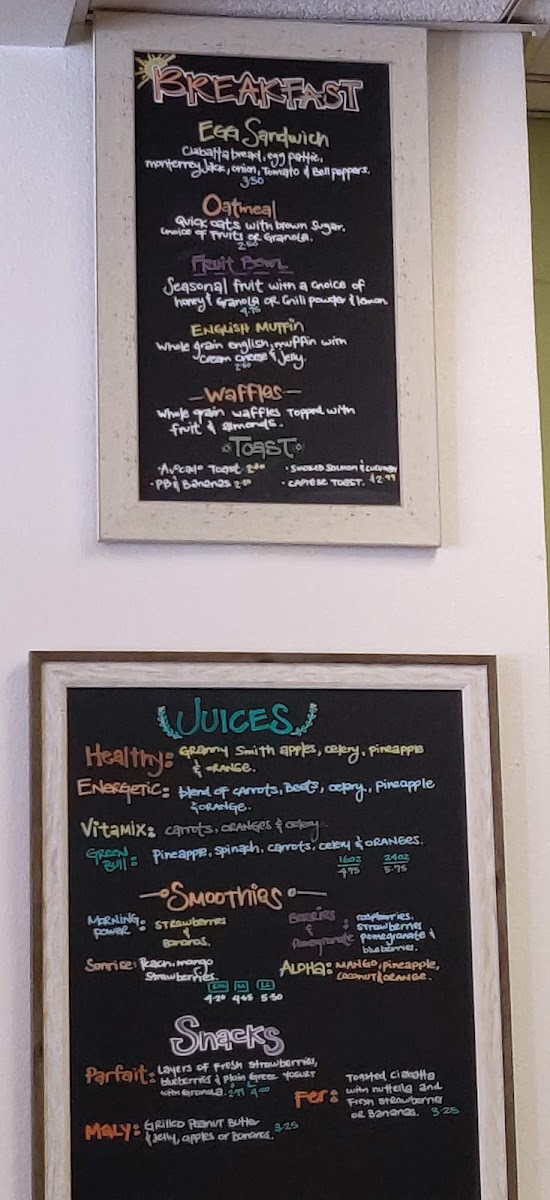 BREAKFAST
Egg Sandwich
Ciabatta bread, egg pattie,
monterrey Jack, onion, Tomato & Bell peppers.
3.50
Oatmeal
Quick oats with brown Sugar.
Choice of Fruits or Granola.
2.50
Fruit Bowl
Seasonal fruit with a choice of
honey & Granola or Chili powder & lemon
4.75
ENGLISH MUFFIN
Whole grain english muffin with
cream cheese & Jelly.
2.50
-Waffles-
Whole grain waffles Topped with
fruit & almonds.
TOAST
· Avocado Toast
· Smoked Salmon & Cucumber
· PB & Bananas
· CAPRESE TOAST. $2.99
JUICES
Healthy: Granny Smith apples, celery, pineapple
& ORANGE.
ENERGETIC: blend of carrots, Beets, celery, pineapple
& ORANGE.
Vitamix: carrots, ORANGES & celery
GREEN BULL: Pineapple, spinach, carrots, celery & ORANGES.
16oz 24oz
4.75 5.75
Smoothies
MORNING POWER: STRAWBERRIES
&
BANANAS.
BERRIES & Pomegranate: raspberries,
strawberries
pomegranate &
blueberries.
Sunrise: Peach, mango
Strawberries.
ALOHA: MANGO, pineapple,
COCONUT & ORANGE.
4.20 4.65 5.50
Snacks
Parfait: Layers of Fresh strawberries,
blueberries & plain Greek YOGURT
with Granola.
Fer: Toasted Ciabatta
with nutella and
Fresh strawberries
or Bananas. 3.25
Maly: GRILLED PEANUT BUTTER
& Jelly, apples or Bananas. 3.25